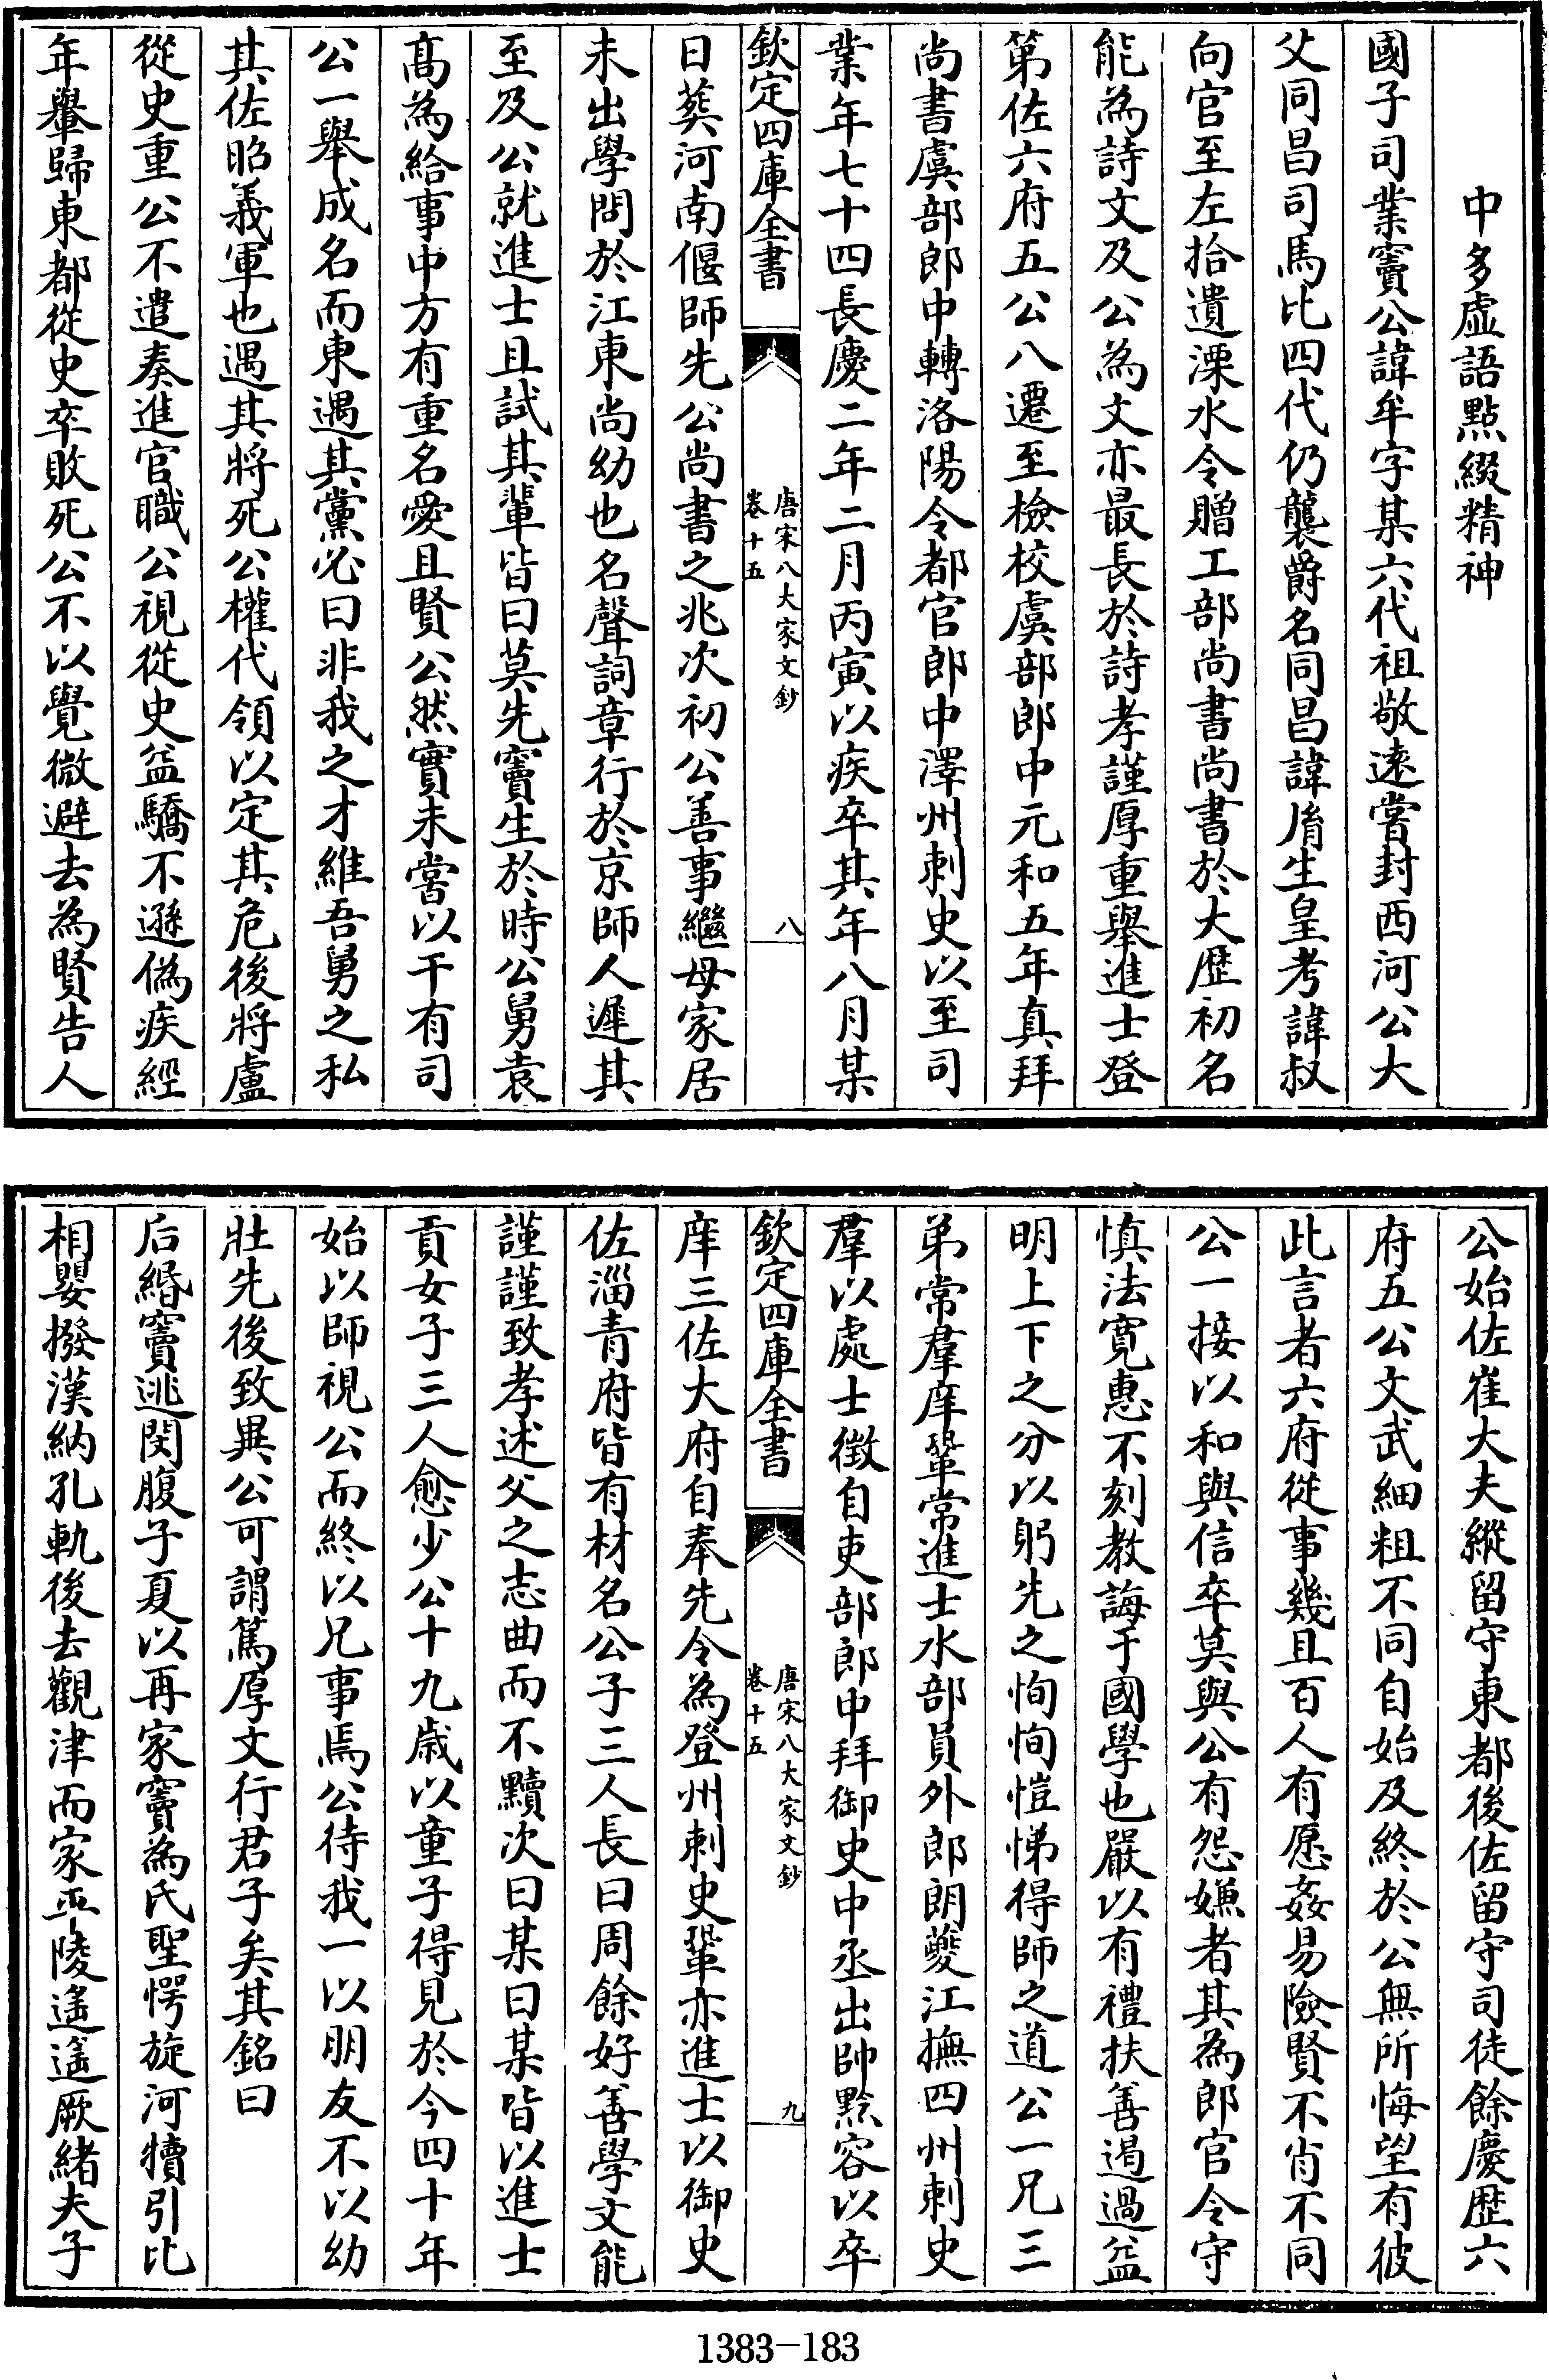 中多虛語點綴精神
國子司業竇公諱牟字某六代祖敬逺嘗封西河公大
父同昌司馬比四代仍襲爵名同昌諱胤生皇考諱叔
向官至左拾遺溧水令贈工部尚書尚書於大歴初名
能為詩文及公為文亦最長於詩孝謹厚重舉進士登
第佐六府五公八遷至檢校虞部郎中元和五年真拜
尚書虞部郎中轉洛陽令都官郎中澤州刺史以至司
業年七十四長慶二年二月丙寅以疾卒其年八月某
欽定四庫全書
唐宋八大家文鈔
卷十五
八
日葬河南偃師先公尚書之兆次初公善事繼母家居
未出學問於江東尚幼也名聲詞章行於京師人遲其
至及公就進士且試其輩皆曰莫先竇生於時公舅袁
髙為給事中方有重名愛且賢公然實未嘗以干有司
公一舉成名而東遇其黨必曰非我之才維吾舅之私
其佐昭義軍也遇其將死公權代領以定其危後將盧
從史重公不遣奏進官職公視從史益驕不遜偽疾經
年轝歸東都從史卒敗死公不以覺微避去為賢告人
公始佐崔大夫縱留守東都後佐留守司徒餘慶歴六
府五公文武細粗不同自始及終於公無所悔望有彼
此言者六府從事幾且百人有愿姦易險賢不肖不同
公一接以和與信卒莫與公有怨嫌者其為郎官令守
慎法寛惠不刻教誨于國學也嚴以有禮扶善遏過益
明上下之分以躬先之恂恂愷悌得師之道公一兄三
弟常羣庠鞏常進士水部員外郎朗夔江撫四州刺史
羣以處士徵自吏部郎中拜御史中丞出帥黔容以卒
欽定四庫全書
唐宋八大家文鈔
卷十五
九
庠三佐大府自奉先令為登州刺史鞏亦進士以御史
佐淄青府皆有材名公子三人長曰周餘好善學文能
謹謹致孝述父之志曲而不黷次曰某曰某皆以進士
貢女子三人愈少公十九歲以童子得見於今四十年
始以師視公而終以兄事焉公待我一以朋友不以幼
壯先後致異公可謂篤厚文行君子矣其銘曰
后緡竇逃閔腹子夏以再家竇為氏聖愕旋河犢引比
相嬰撥漢納孔軌後去觀津而家平陵遙遙厥緒夫子
1383-183